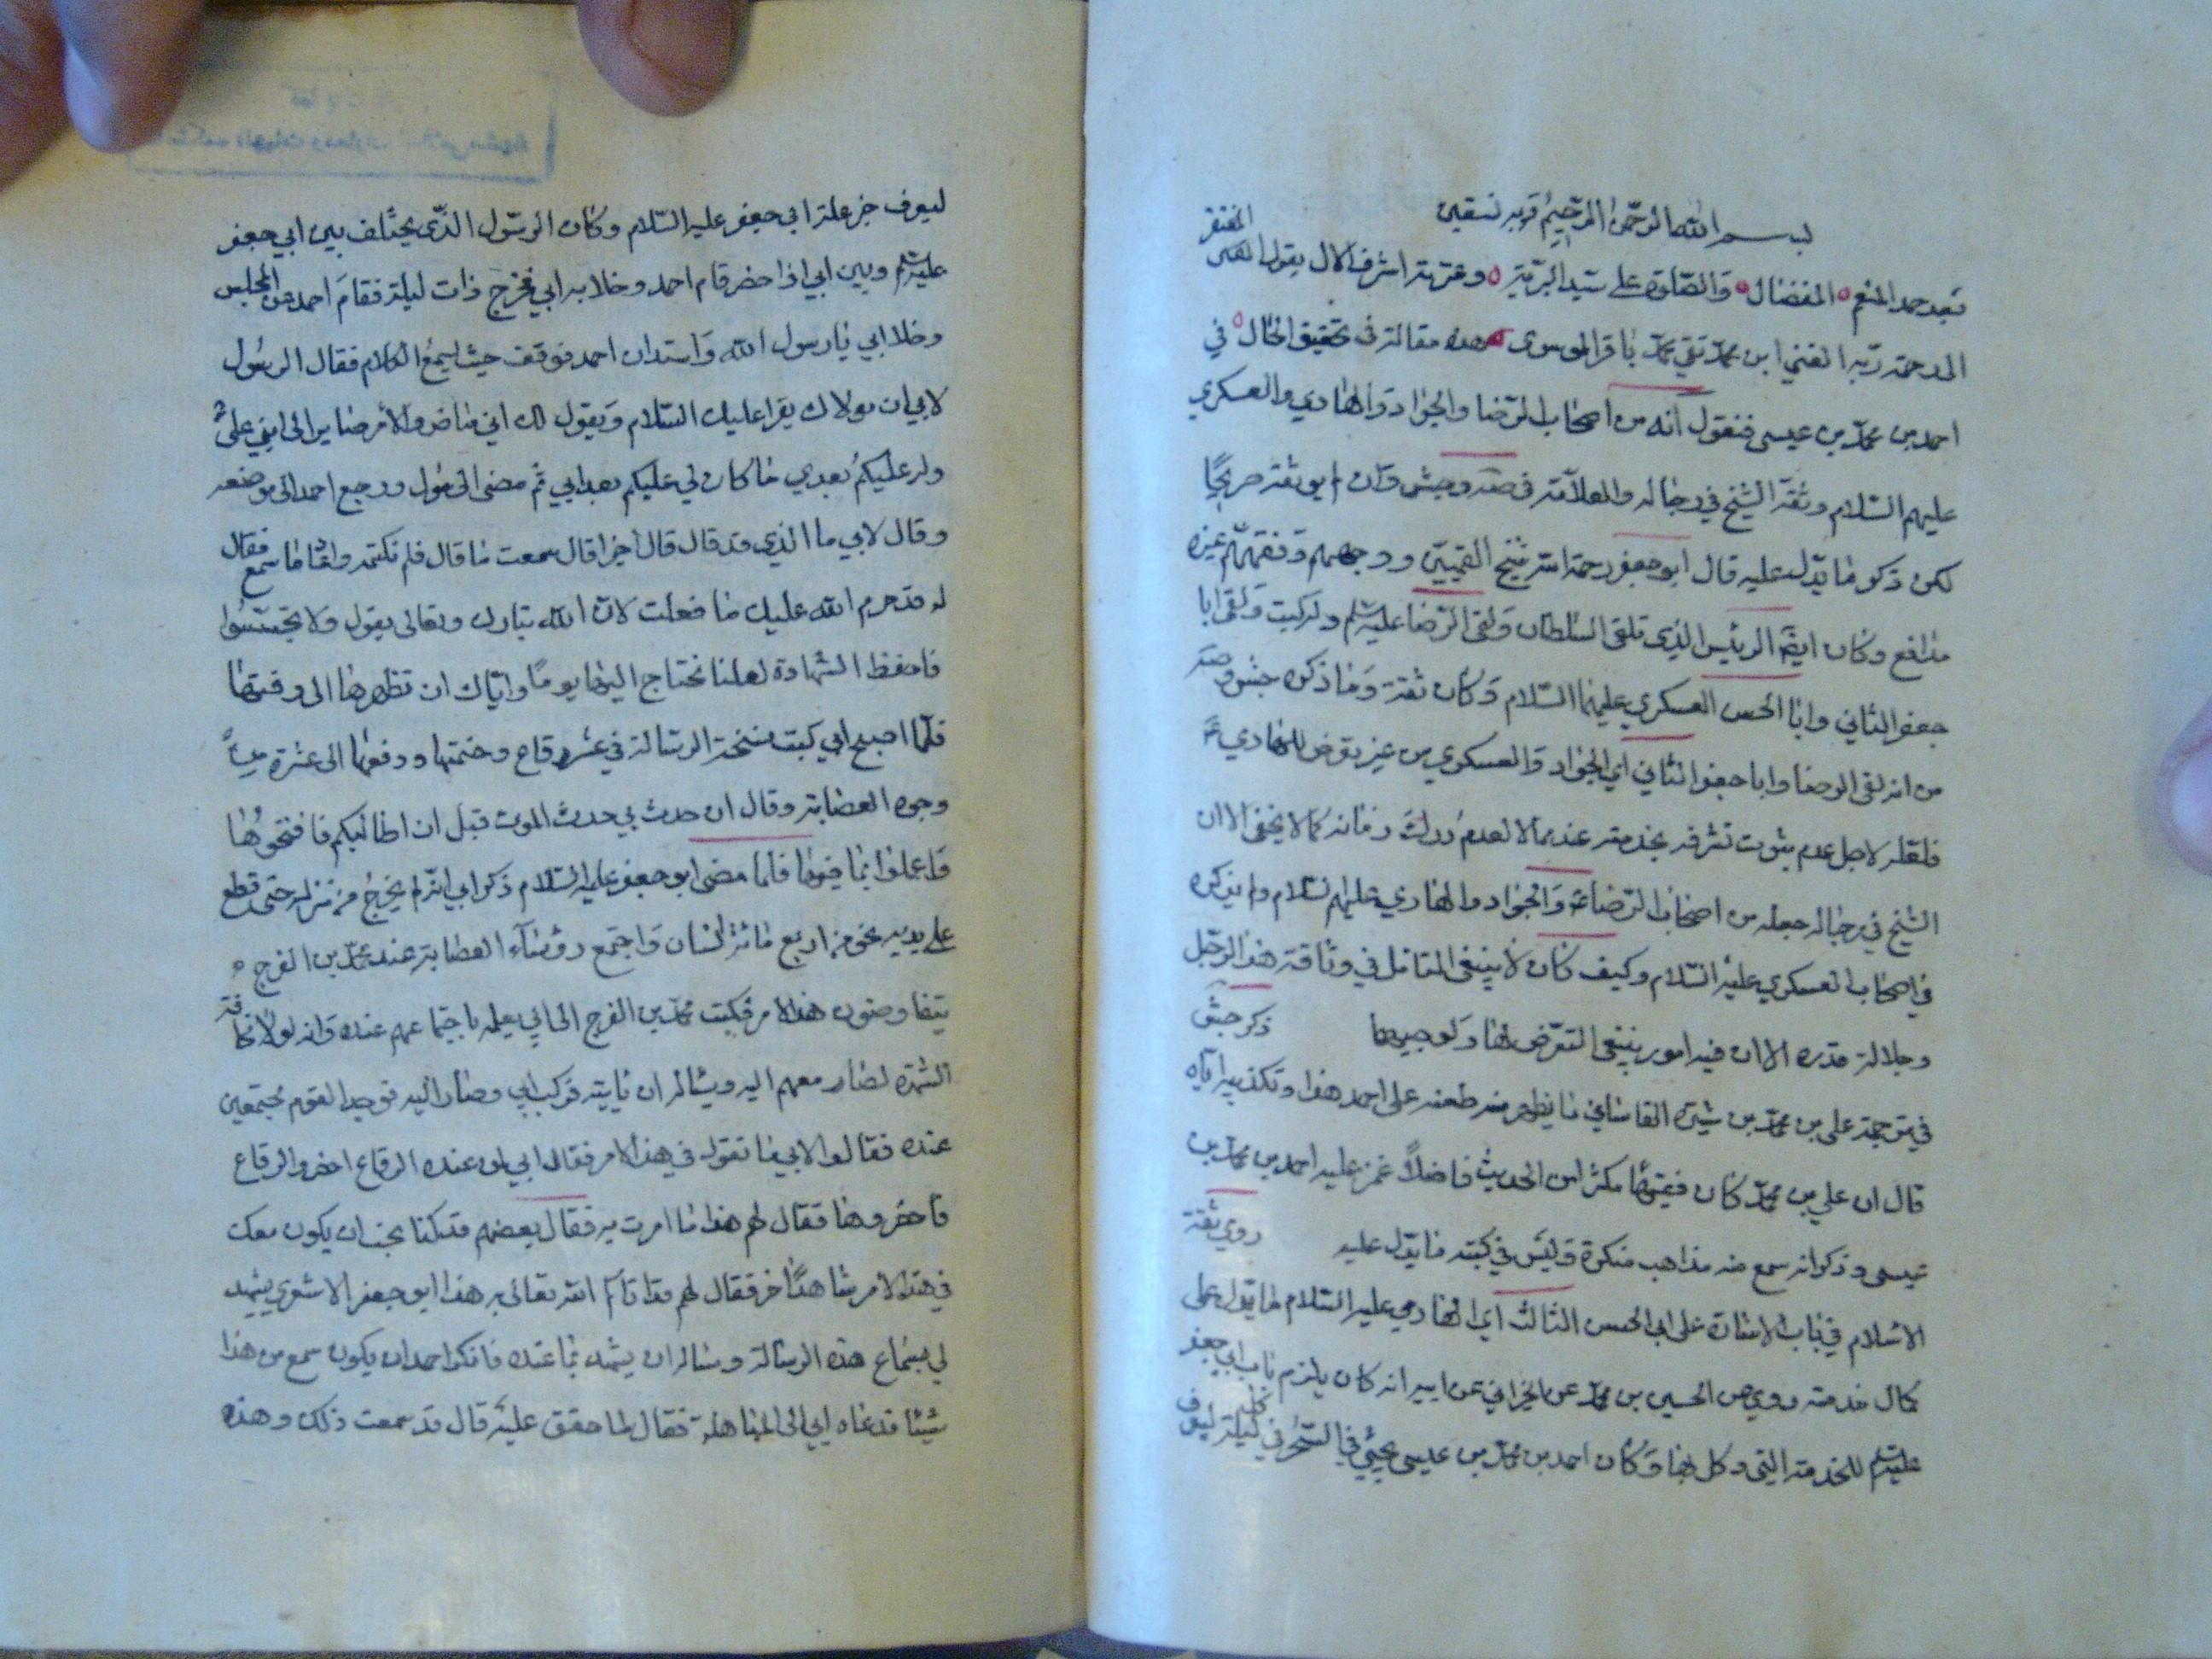 بسم الله الرحمن الرحيم وبه نستعين
نبعد حمد المنعم المفضال والصلوة على سيد البرية وعترته اشرف الآل يقول المفتقر
الى رحمة ربه الغني ابن محمد تقي محمد باقر الموسوي هذه مقالة في تحقيق الحال في
احمد بن محمد بن عيسى فنقول انه من اصحاب الرضا والجواد والهادي والعسكري
عليهم السلام وثقه الشيخ في رجاله والعلامة في صه وجش وان لم يوثقه صريحا
لكن ذكر ما يدل عليه قال ابو جعفر رحمه الله شيخ القميين ووجههم وفقيههم غير
مدافع وكان ايضا الرئيس الذي تلقى السلطان ولقى الرضا عليه السلم وله كتب ولقى ابا
جعفر الثاني وابا الحسن العسكري عليهما السلام وكان ثقة وما ذكره جش وصه
من انه لقى الرضا وابا جعفر الثاني اي الجواد والعسكري من غير تعرض للهادي ع
فلعله لاجل عدم ثبوت تشرفه بخدمته عندهما لا لعدم درك زمانه كما لا يخفى الا ان
الشيخ في رجاله جعله من اصحاب الرضا ع والجواد والهادي عليهم السلام ولم يذكره
في اصحاب العسكري عليه السلام وكيف كان لا ينبغي التامل في وثاقة هذا الرجل
وجلالة قدره الا ان فيه امور ينبغي التعرض لها ولوجيهها ذكر جش
في ترجمة علي بن محمد بن شيرة القاساني ما يظهر منه طعنه على احمد هذا وتكذيبه اياه
قال ان علي بن محمد كان فقيها مكثرا من الحديث فاضلا غمز عليه احمد بن محمد بن
عيسى وذكر انه سمع منه مذاهب منكرة وليس في كتبه ما يدل عليه روى ثقة
الاسلام في باب الاشارة على ابى الحسن الثالث اي الهادي عليه السلام ما يدل على
كمال خدمته روى عن الحسين بن محمد عن الخيراني عن ابيه انه كان يلزم باب ابي جعفر
عليه السلم للخدمة التي وكل بها وكان احمد بن محمد بن عيسى يجيئ في السحر في كل ليلة ليعرف
ليعرف خبر علة ابي جعفر عليه السلام وكان الرسول الذي يختلف بين ابي جعفر
عليه السلم وبين ابي اذا حضر قام احمد وخلا به ابي فخرج ذات ليلة فقام احمد عن المجلس
وخلا ابي با رسول الله واستدان احمد فوقف حيث يسمع الكلام فقال الرسول
لابي ان مولاك يقرا عليك السلام ويقول لك اني ماض والامر صاير الى ابني علي
وله عليكم بعدي ما كان لي عليكم بعد ابي ثم مضى الرسول ورجع احمد الى موضعه
وقال لابي ما الذي قد قال قال خيرا قال سمعت ما قال فلم تكتمه واعاد ما سمع فقال
له قد حرم الله عليك ما فعلت لان الله تبارك وتعالى يقول ولا تجسسوا
فاحفظ الشهادة لعلنا نحتاج اليها يوما واياك ان تظهرها الى وقتها
فلما اصبح ابي كتب نسخة الرسالة في عشر رقاع وختمها ودفعها الى عشرة من
وجوه العصابة وقال ان حدث بي حدث الموت قبل ان اطالبكم فافتحوها
واعملوا بما فيها فلما مضى ابو جعفر عليه السلام ذكر ابي انه لم يخرج من منزله حتى قطع
على يديه نحو من اربع مائة انسان واجتمع رؤساء العصابة عند محمد بن الفرج
يتفاوضون هذا الامر فكتب محمد بن الفرج الى ابي يعلمه باجتماعهم عنده وانه لولا مخافة
الشهرة لصار معهم اليه ويساله ان ياتيه فركب ابي وصار اليه فوجد القوم مجتمعين
عنده فقالوا لابي ما تقول في هذا الامر فقال ابي لمن عنده الرقاع احضروا الرقاع
فاحضروها فقال لهم هذا ما امرت به فقال بعضهم قد كنا نحب ان يكون معك
في هذا الامر شاهدا اخر فقال لهم قد اتاكم الله تعالى به هذا ابو جعفر الاشعري يشهد
لي بسماع هذه الرسالة وساله ان يشهد بما عنده فانكر احمد ان يكون سمع من هذا
شيئا فدعاه ابي الى المباهلة فقال لما حقق عليه قال قد سمعت ذلك وهذه